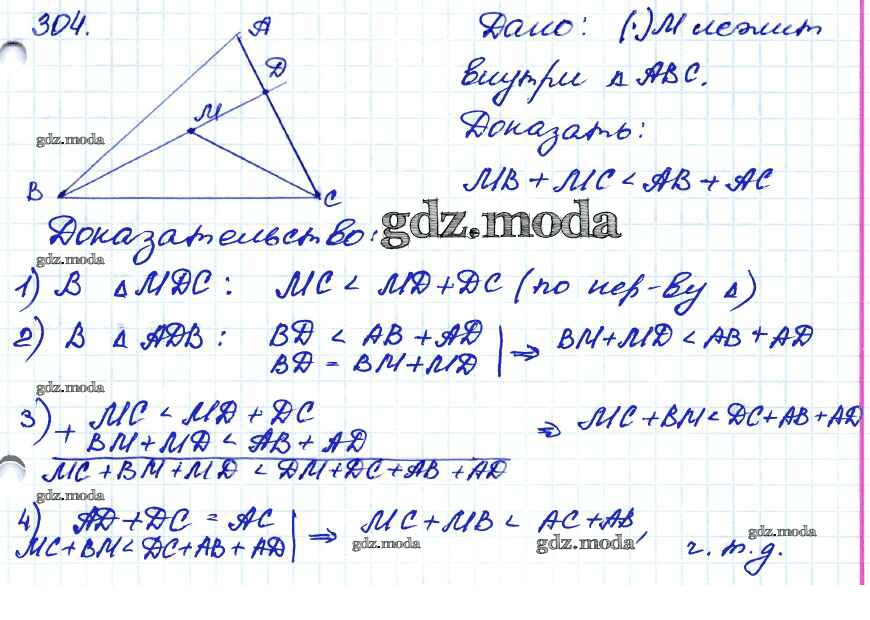 304.
A
D
M
B
C
gdz.moda
Дано: (·) M лежит
внутри △ ABC.
Доказать:
MB + MC < AB + AC
Доказательство:
gdz.moda
gdz.moda
1) В △ MDC: MC < MD + DC (по нер-ву △)
2) В △ ADB: BD < AB + AD
BD = BM + MD
⇒ BM + MD < AB + AD
gdz.moda
3) + MC < MD + DC
BM + MD < AB + AD
MC + BM + MD < DM + DC + AB + AD
⇒ MC + BM < DC + AB + AD
gdz.moda
4) AD + DC = AC
MC + BM < DC + AB + AD
⇒ MC + MB < AC + AB,
gdz.moda
gdz.moda
gdz.moda
ч. т. д.